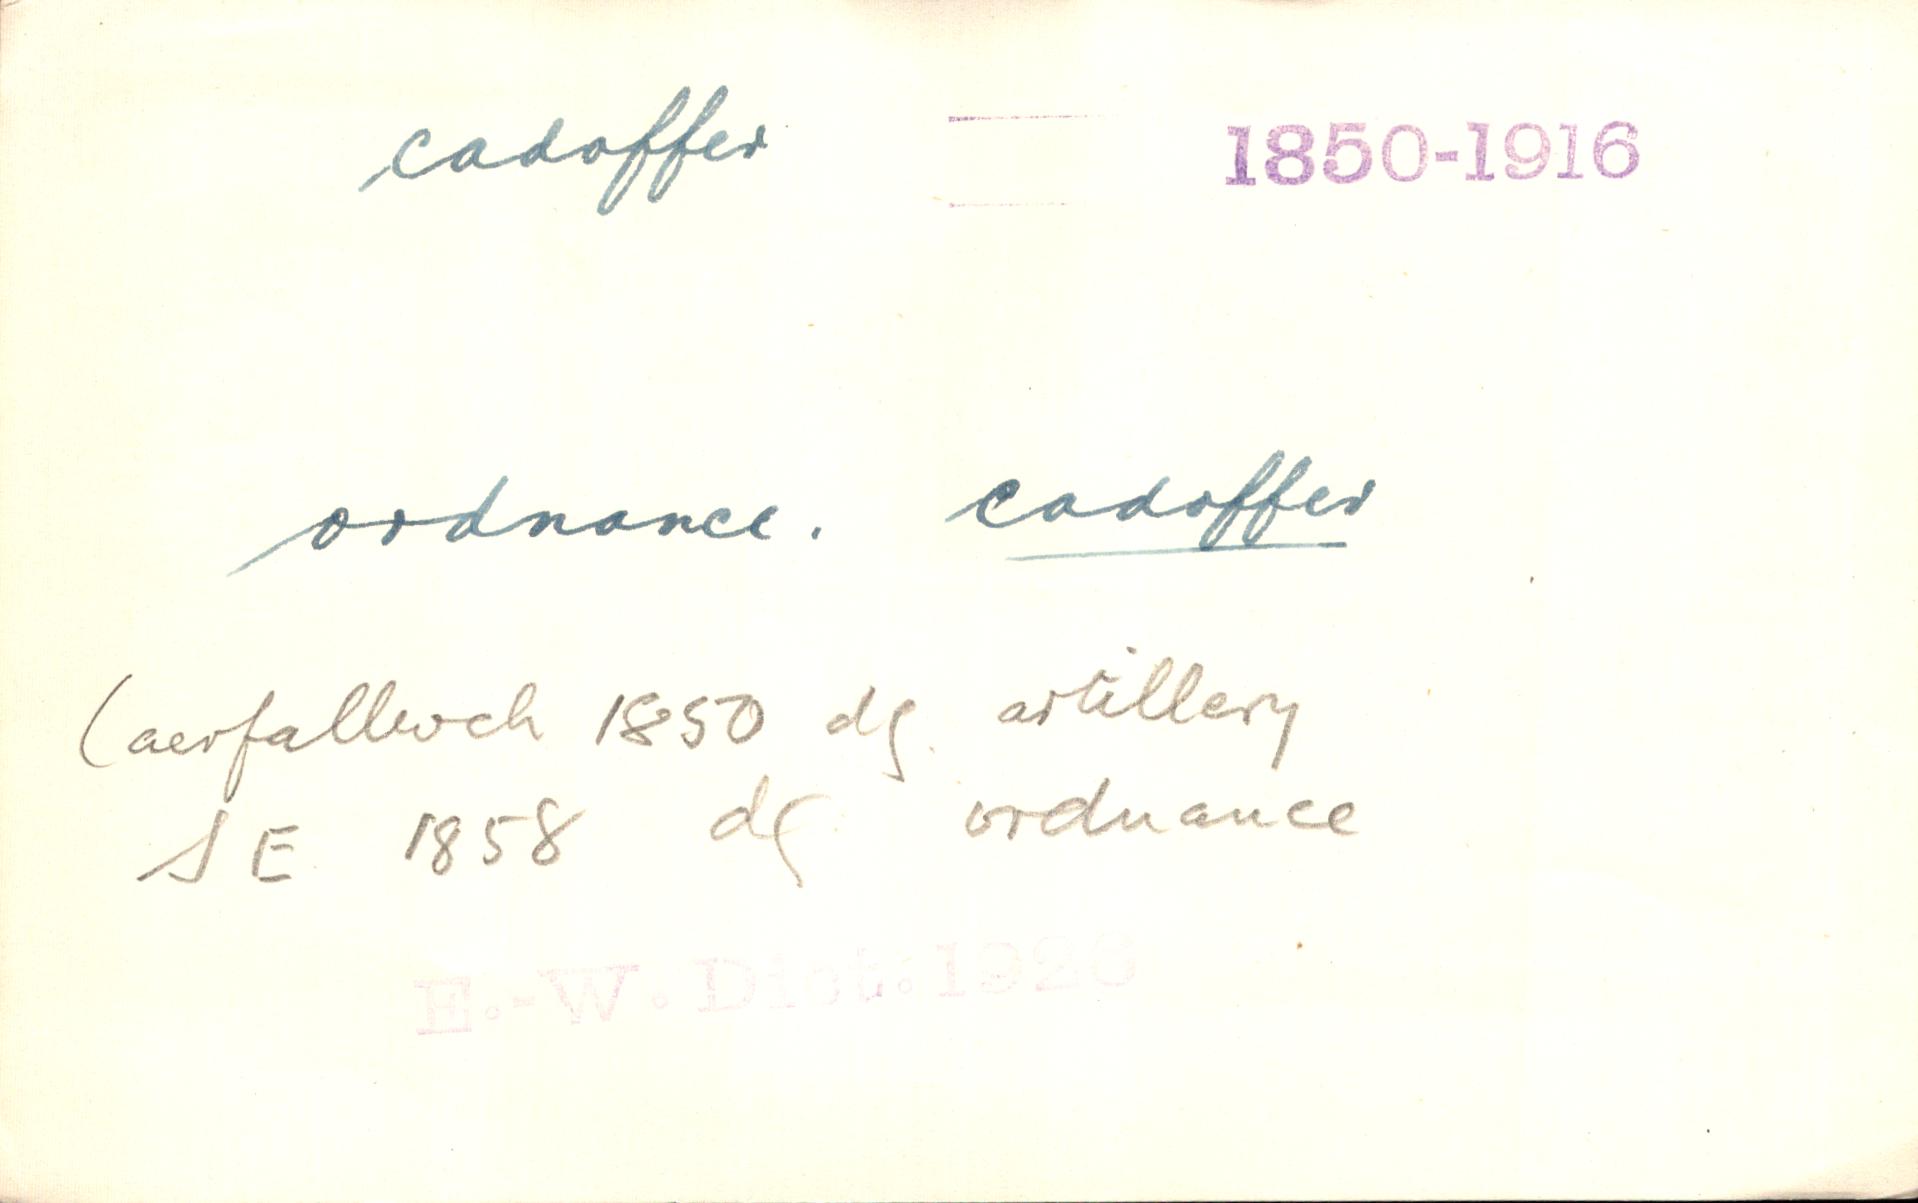 cadoffer 1850-1916
ordnance. cadoffer
(aerfallwch 1850 dg. artillery
SE 1858 dg ordnance
E.-W. Dict. 1926